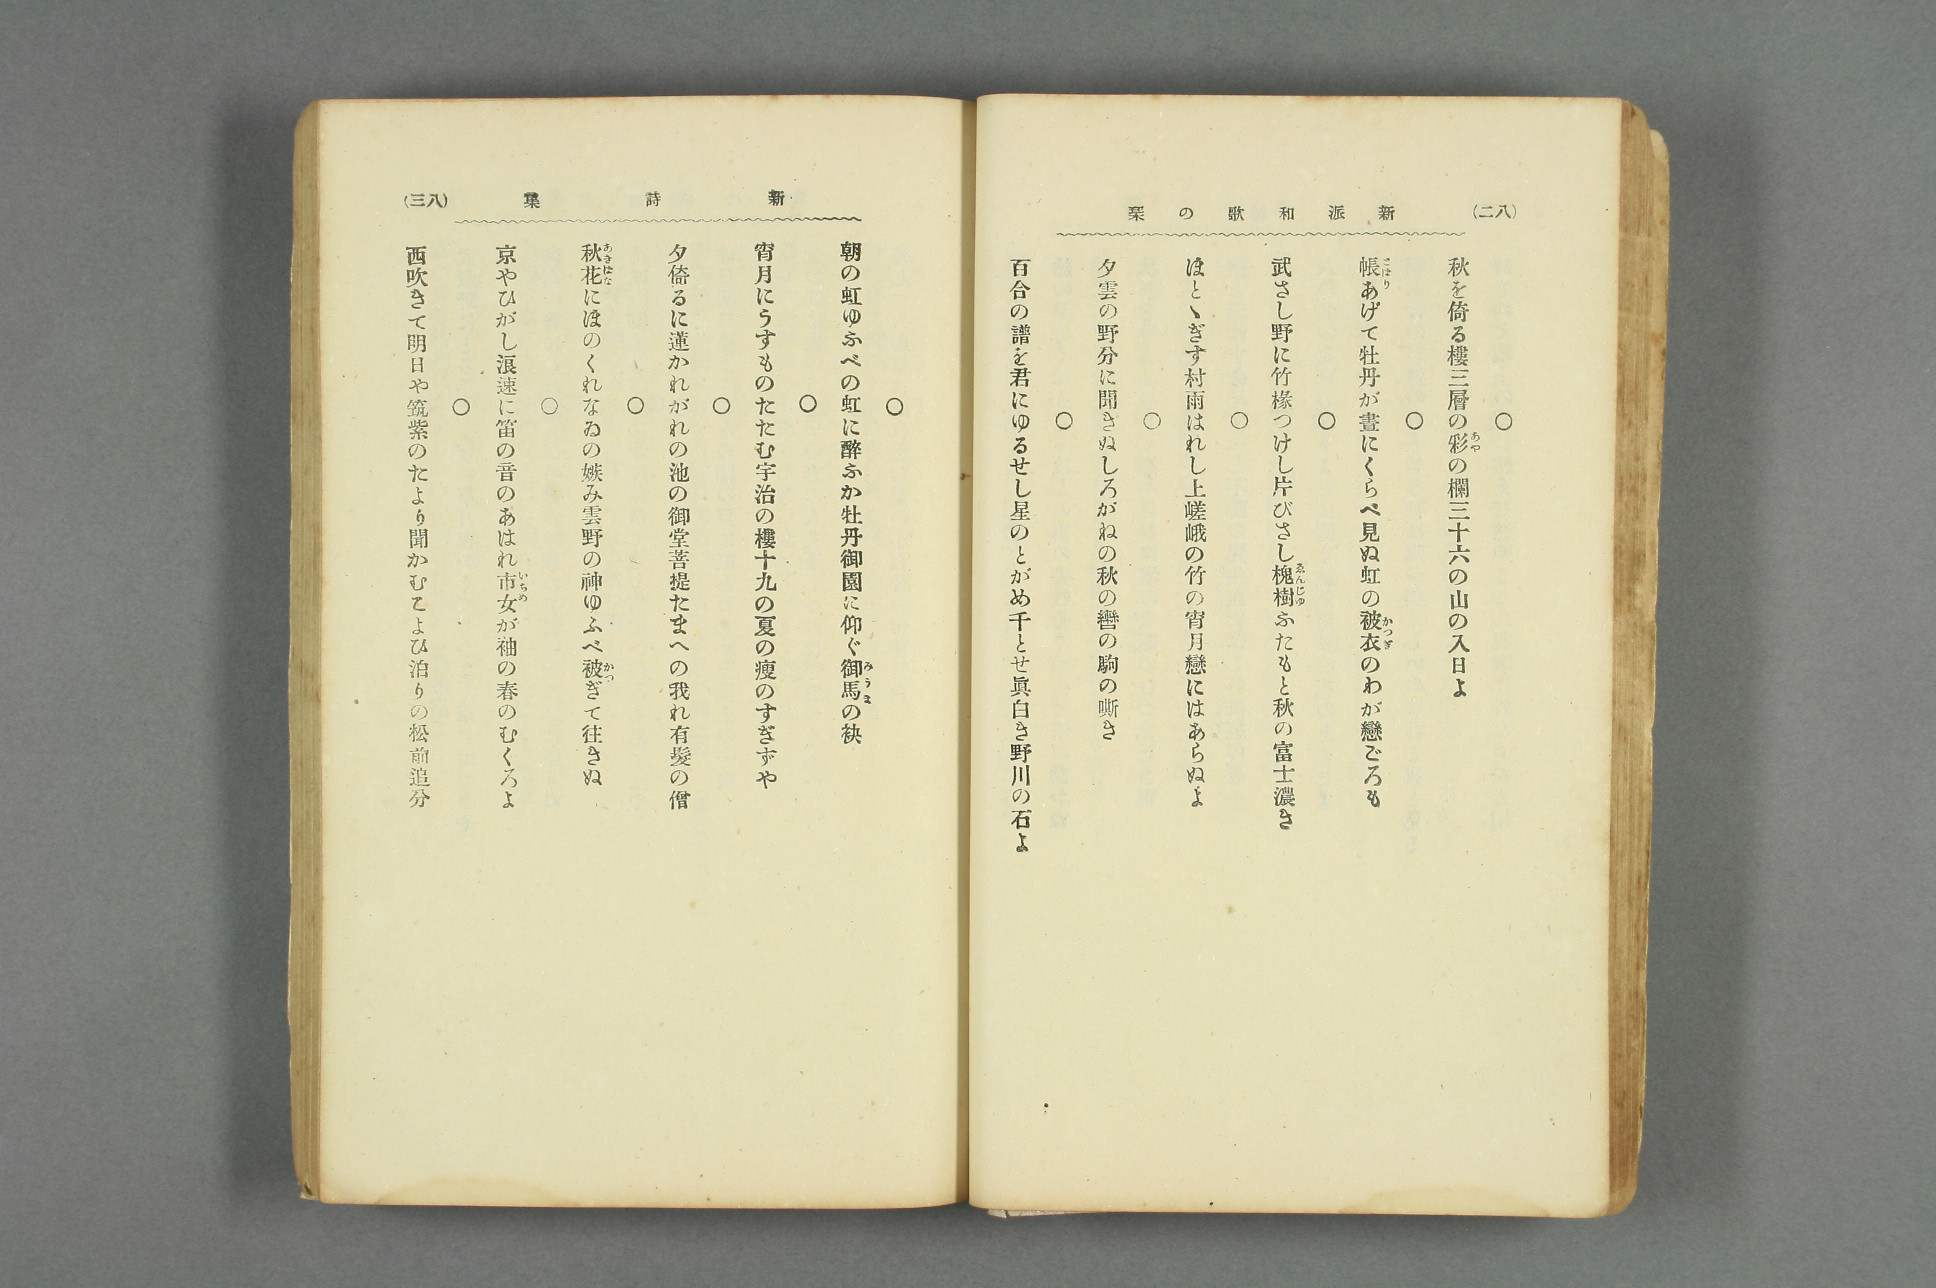 (八二)
新派和歌の栞
○
秋を倚る樓三層の彩の欄三十六の山の入日よ
○
帳あげて牡丹が晝にくらべ見ぬ虹の被衣のわが戀ごろも
○
武さし野に竹椽つけし片びさし槐樹ふたもと秋の富士濃き
○
ほとゝぎす村雨はれし上嵯峨の竹の宵月戀にはあらぬよ
○
夕雲の野分に聞きぬしろがねの秋の轡の駒の嘶き
○
百合の譜を君にゆるせし星のとがめ千とせ眞白き野川の石よ
新詩集
(八三)
○
朝の虹ゆふべの虹に醉ふか牡丹御園に仰ぐ御馬の袂
○
宵月にうすものたたむ宇治の樓十九の夏の瘦のすぎずや
○
夕倚るに蓮かれがれの池の御堂菩提たまへの我れ有髮の僧
○
秋花にほのくれなゐの嫉み雲野の神ゆふべ被ぎて往きぬ
○
京やひがし浪速に笛の音のあはれ市女が袖の春のむくろよ
○
西吹きて明日や筑紫のたより聞かむこよひ泊りの松前追分